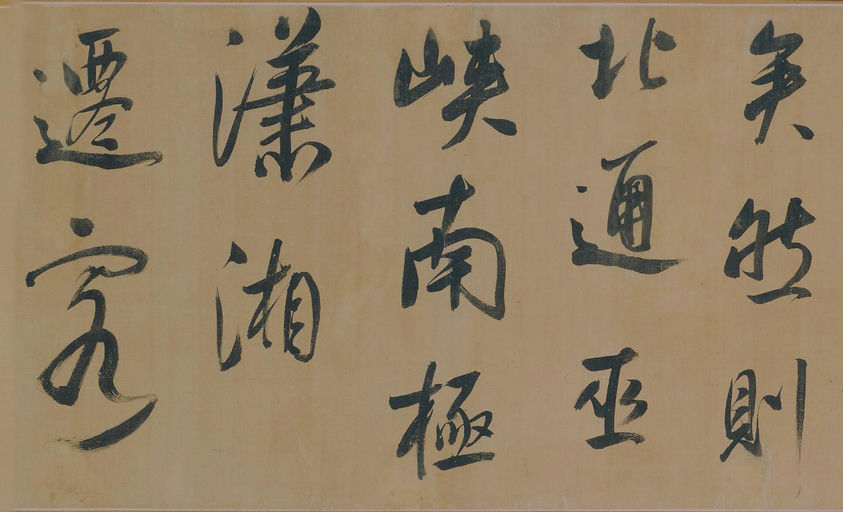 矣然則
北通巫
峽南極
瀟湘
遷客